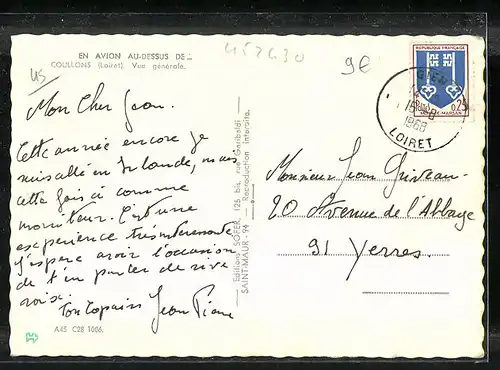 EN AVION AU-DESSUS DE...
COULLONS (Loiret). Vue générale.
457430
9€
US
Mon Cher Jean.
Cette année encore je
suis allé en Irlande, mais
cette fois ci comme
moniteur. C'est une
experience très interessante
J'espere avoir l'occasion
de t'en parler de vive
voix.
Ton Copain Jean Pierre
A45 C28 1006.
Editions SOFER, 126 bis, rue Garibaldi
SAINT-MAUR - 94 — Reproduction interdite.
REPUBLIQUE FRANÇAISE
0,25
MARSAN
GIEN
15-8
1968
LOIRET
Monsieur Jean
20 Avenue de l'Abbaye
91 Yerres.